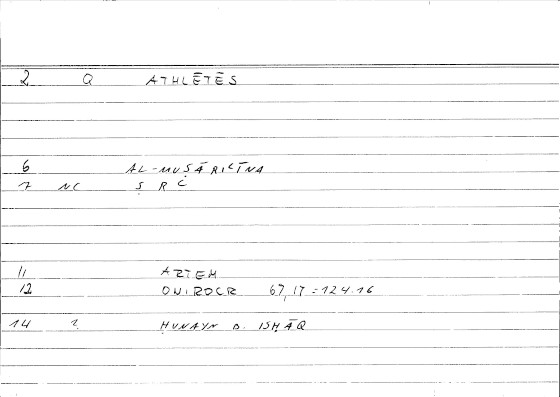 2 Q ATHLĒTĒS
6 AL-MUṢĀRIʿĪNA
7 NC Ṣ R ʿ
11 ARTEM
12 ONIROCR 67,17=124.16
14 2 ḤUNAYN B. ISḤĀQ